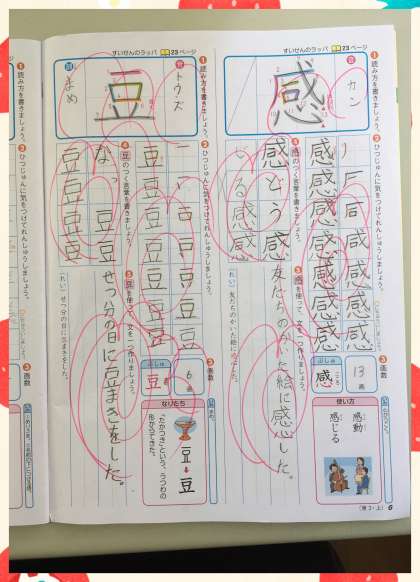 すいせんのラッパ 23ページ
感
音 カン
1 読み方を書きましょう。
2 ひつじゅんに気をつけてれんしゅうしましょう。
感 感 感 感 感
3 画数
13画
ぶしゅ
感 こころ
使い方
感動
感じる
4 感のつく言葉を書きましょう。
感どう
感じる
感
5 感を使って、文を一つ作りましょう。
友だちのかいた絵に感した。
(れい) 友だちのかいた絵に
すいせんのラッパ 23ページ
豆
音 トウ・ズ
訓 まめ
1 読み方を書きましょう。
2 ひつじゅんに気をつけてれんしゅうしましょう。
豆 豆 豆 豆 豆
3 画数
6画
ぶしゅ
豆 まめ
なりたち
「たかつき」という、うつわの形からできた。
豆
4 豆のつく言葉を書きましょう。
なっ豆
豆 豆 豆 豆 豆
5 豆を使って、文を一つ作りましょう。
せつ分の日に豆まきをした。
(れい) せつ分の日に豆まきをした。
1 読み方を書きましょう。
2 ひつじゅんに気をつけてれんしゅうしましょう。
3 画数
(東3・上) 6